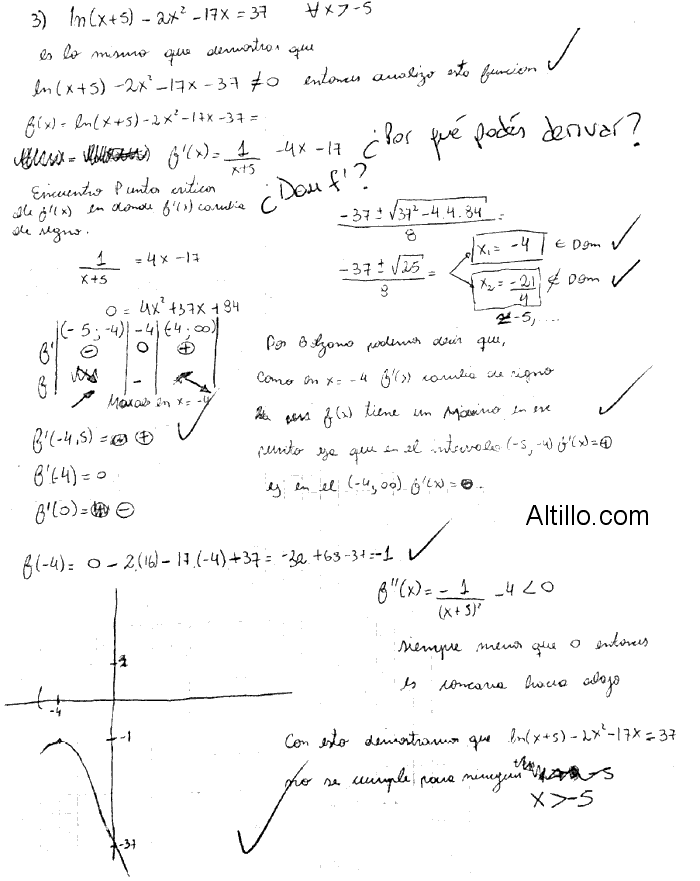 3) ln(x+5) - 2x² - 17x = 37 ∀x > -5
es lo mismo que demostrar que
ln(x+5) - 2x² - 17x - 37 ≠ 0 entonces analizo esta funcion
f(x) = ln(x+5) - 2x² - 17x - 37 =
f'(x) = 1/(x+5) - 4x - 17 ¿Por qué podés derivar?
¿Dom f'?
Encuentro Puntos criticos
de f'(x) en donde f'(x) cambia
de signo.
1/(x+5) = 4x - 17
0 = 4x² + 37x + 84
(-37 ± √(37² - 4.4.84))/8 =
(-37 ± √25)/8 =
x₁ = -4 ∈ Dom
x₂ = -21/4 ∉ Dom
-5, ...
(-5; -4) | -4 | (-4; ∞)
f' | - | 0 | +
f | -
en x = -4
f'(-4,5) = +
f'(-4) = 0
f'(0) = -
Por Bolzano podemos decir que,
como en x = -4 f'(x) cambia de signo
f(x) tiene un Maximo en ese
punto ya que en el intervalo (-5, -4) f'(x) = +
en el (-4, ∞) f'(x) = -.
Altillo.com
f(-4) = 0 - 2(16) - 17.(-4) + 37 = -32 + 68 - 37 = -1
f''(x) = -1/(x+5)² - 4 < 0
siempre menor que 0 entonces
es concava hacia abajo
-4
-1
-37
Con esto demostramos que ln(x+5) - 2x² - 17x = 37
no se cumple para ningun
x > -5